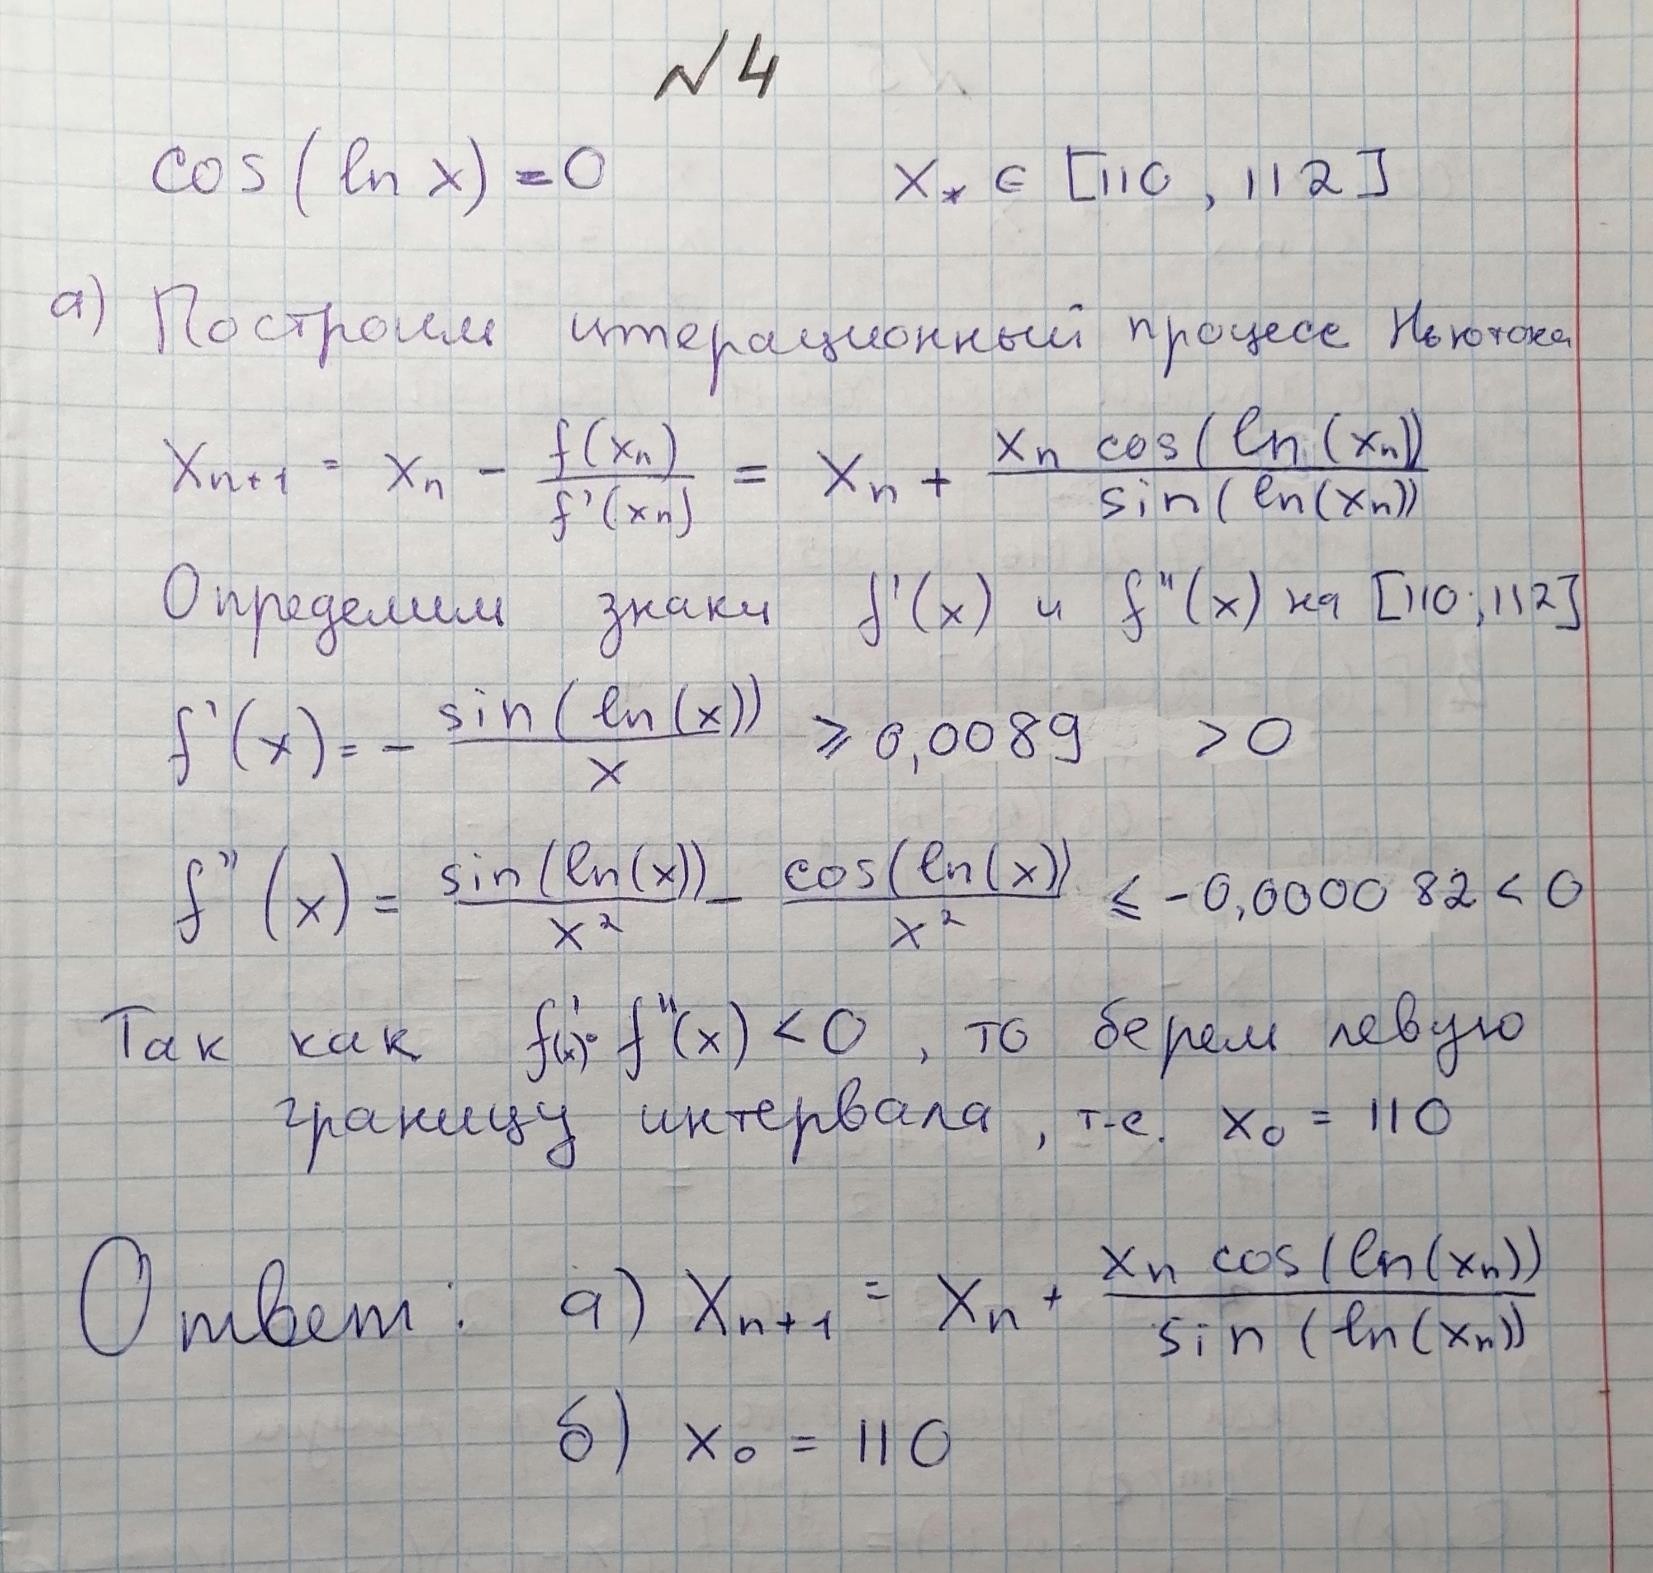 №4
cos(ln x) = 0 x* ∈ [110, 112]
а) Построим итерационный процесс Ньютона
xₙ₊₁ = xₙ - f(xₙ)/f'(xₙ) = xₙ + xₙ cos(ln(xₙ))/sin(ln(xₙ))
Определим знаки f'(x) и f''(x) на [110; 112]
f'(x) = - sin(ln(x))/x ⩾ 0,0089 > 0
f''(x) = sin(ln(x))/x² - cos(ln(x))/x² ⩽ -0,000082 < 0
Так как f'(x)·f''(x) < 0, то берем левую
границу интервала, т.е. x₀ = 110
Ответ: а) xₙ₊₁ = xₙ + xₙ cos(ln(xₙ))/sin(ln(xₙ))
б) x₀ = 110